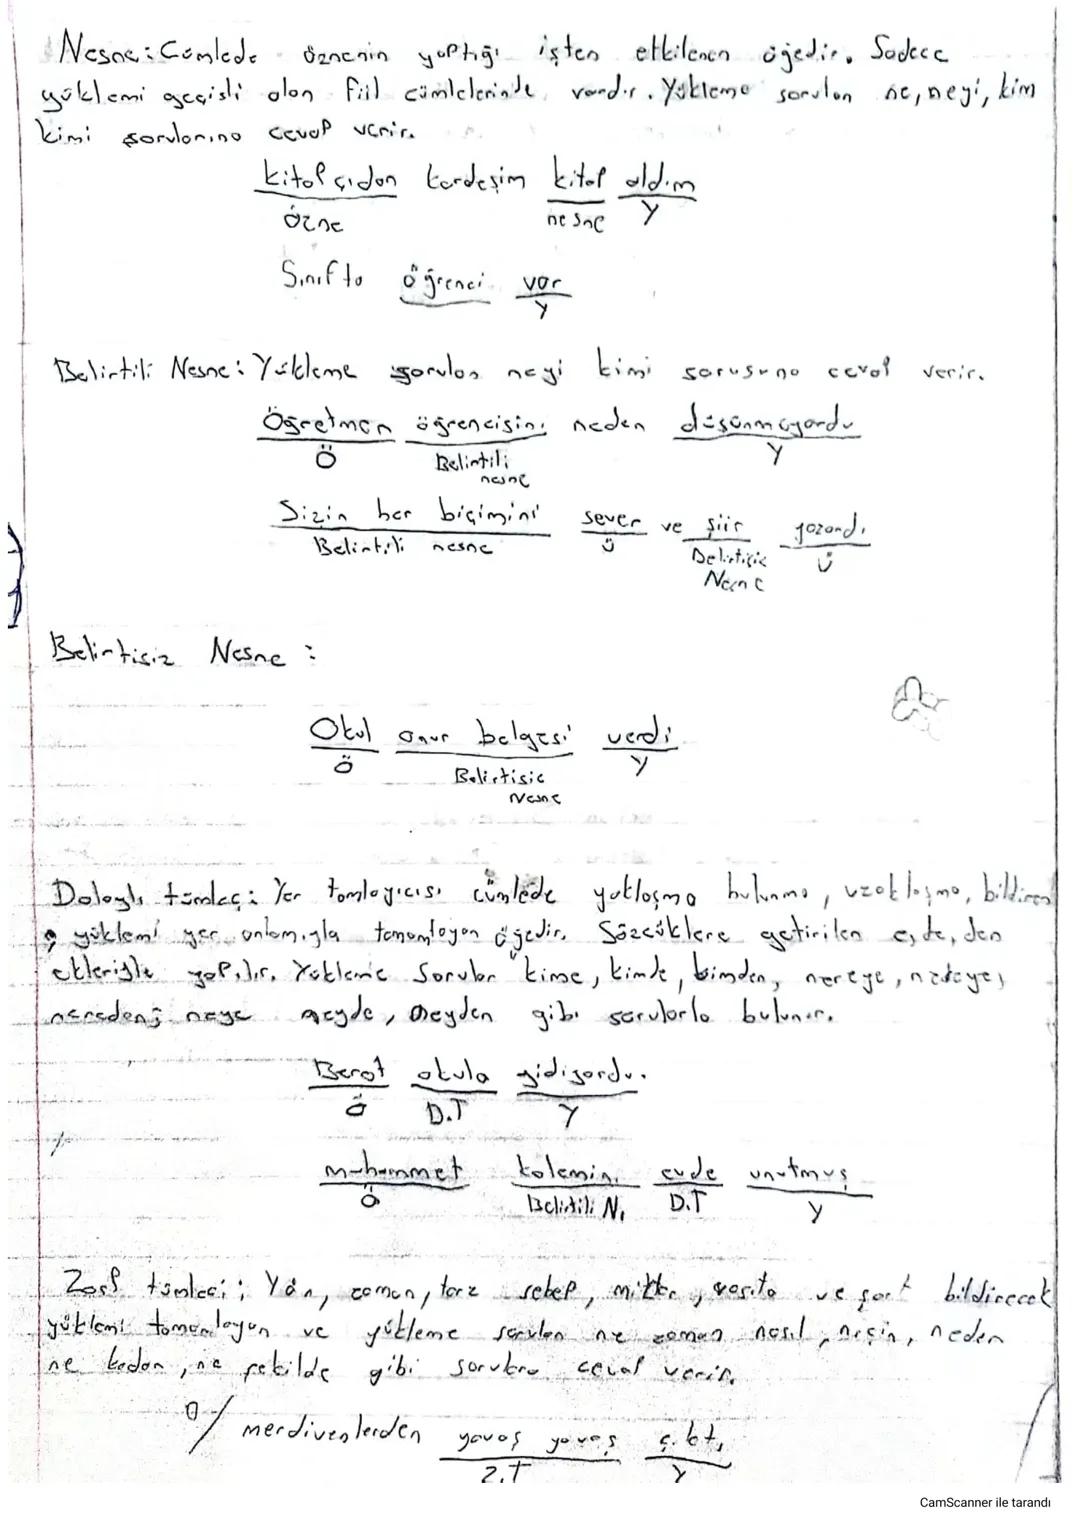 Nesne: Cümlede öznenin yaptığı işten etkilenen öğedir. Sadece
yüklemi geçişli olan fiil cümlelerinde vardır. Yükleme sorulan ne, neyi, kim
kimi sorularına cevap verir.
kitapçıdan kardeşim kitap aldım
Özne nesne Y
Sınıfta öğrenci var
Y
Belirtili Nesne: Yükleme sorulan neyi kimi sorusuna cevap verir.
Öğretmen öğrencisini neden düşünmüyordu
Ö Belirtili Y
nesne
Sizin her biçimini sever ve şiir yazardı
Belirtili nesne ü Belirtisiz ü
Nesne
Belirtisiz Nesne :
Okul onur belgesi verdi
Ö Belirtisiz Y
Nesne
Dolaylı tümleç: Yer tamlayıcısı cümlede yaklaşma bulunma, uzaklaşma, bildiren
yüklemi yer anlamıyla tamamlayan öğedir. Sözcüklere getirilen e, de, den
ekleriyle yapılır. Yükleme Sorular "kime, kimde, kimden, nereye,
nereden; neye neyde, neyden gibi sorularla bulunur.
Berat okula gidiyordu.
Ö D.T Y
muhammet kalemini evde unutmuş
Ö Belirtili N. D.T Y
Zarf tümleci; Yön, zaman, tarz sebep, miktar, vasıta ve şart bildirerek
yüklemi tamamlayan ve yükleme sorulan ne zaman nasıl, niçin, neden
ne kadar, ne şekilde gibi sorulara cevap verir.
O/ merdivenlerden yavaş yavaş çıktı
Z.T Y
CamScanner ile tarandı